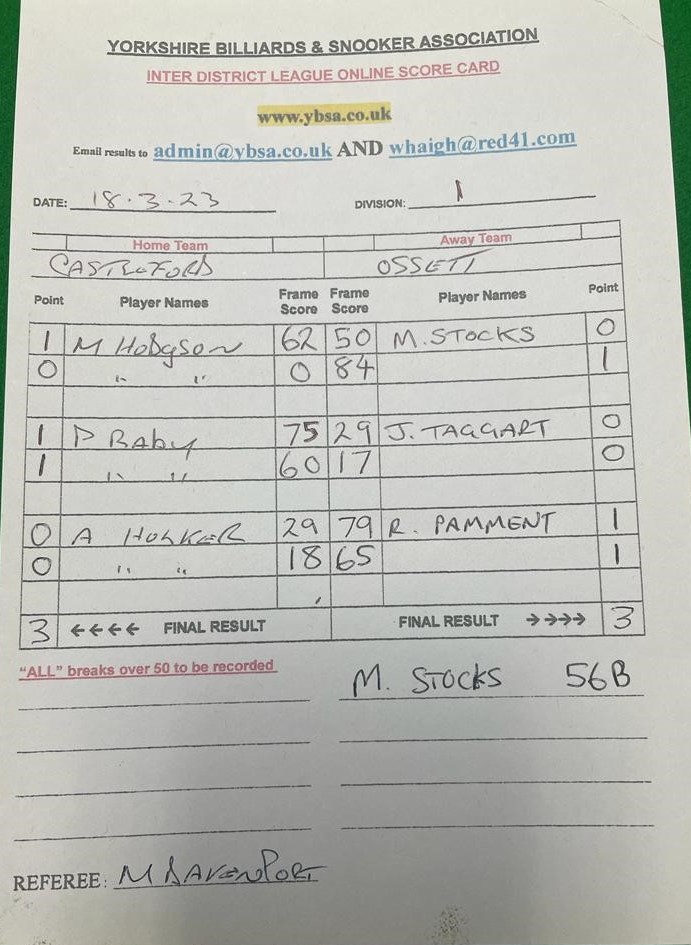 YORKSHIRE BILLIARDS & SNOOKER ASSOCIATION
INTER DISTRICT LEAGUE ONLINE SCORE CARD
www.ybsa.co.uk
Email results to admin@ybsa.co.uk AND whaigh@red41.com
DATE: 18.3.23 DIVISION: 1
Home Team Away Team
CASTLEFORD OSSETT
Point Player Names Frame Score Frame Score Player Names Point
1 M HODGSON 62 50 M. STOCKS 0
0 " " 0 84 1
1 P RABY 75 29 J. TAGGART 0
1 " " 60 17 0
0 A 29 79 R. PAMMENT 1
0 " " 18 65 1
3 ←←←← FINAL RESULT FINAL RESULT →→→→ 3
"ALL" breaks over 50 to be recorded
M. STOCKS 56B
REFEREE: M DAVENPORT